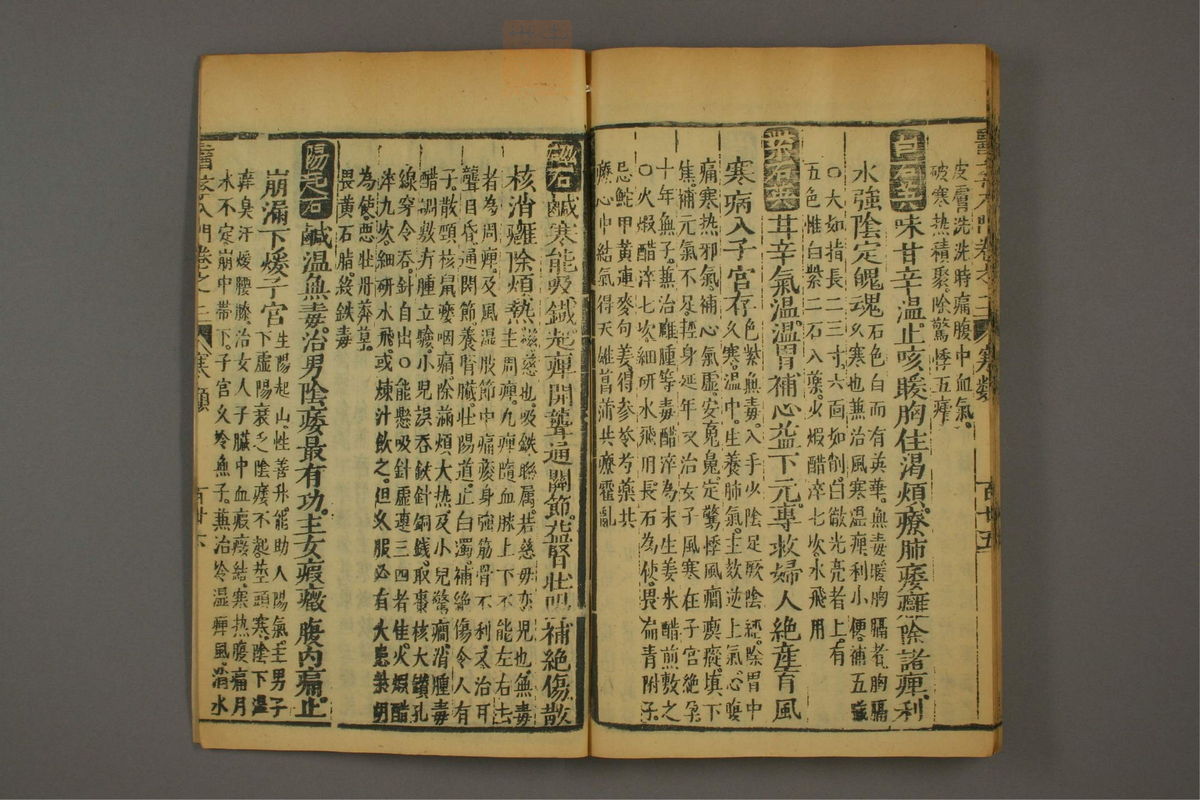 醫學入門卷之二 寒類 百廿五
皮膚洗洗時痛腹中血氣
破寒热積聚除驚悸五癃
白石英 味甘辛溫止咳暖胸住渴煩療肺痿癰除諸痺利
水強陰定魄魂
石色白而有英華無毒暖胸膈者胸膈
久寒也兼治風寒溫痺利小便補五臟
○大如指長二三寸六面如削白徹光亮者上有
五色惟白紫二石入藥火煅醋淬七次水飛用
紫石英 茸辛氣温温胃補心益下元專救婦人絶産育風
寒病入子宮存
色紫無毒入手少陰足厥陰經除胃中
久寒溫中生養肺氣主欬逆上氣心腹
痛寒热邪氣補心氣虛安䰟魄定驚悸風癎瘈瘲填下
焦補元氣不足輕身延年又治女子風寒在子宮絶孕
十年無子兼治雕腫等毒醋淬為末生姜米醋煎敷之
○火煅醋淬七次細研水飛用長石為使畏扁青附子
忌鮀甲黄連麥句姜得参苓芍藥共
療心中結氣得天雄菖蒲共療霍亂
磁石 鹹寒能吸鐵起痺開聾通關節益腎壯陽補絶傷散
核消癰除煩熱
磁慈也吸鉄聯属若慈母恋児也無毒
主周痺九痺隨血脉上下不能左右去
者為周痺及風湿肢節中痛痠身強筋骨不利又治耳
聾目昏通関節養腎臓壯陽道止白濁補絶傷令人有
子散頸核鼠瘻咽痛除滿煩大热及小兒驚癎消腫毒
醋調敷疔腫立驗小児誤吞鉄針銅銭取棗核大鑚孔
線穿令吞針自出○能懸吸針虛連三四者佳火煆醋
淬九次細研水飛或煉汁飲之但久服必有大患柴胡
為使悪牡丹莾草
畏黄石脂終鉄毒
陽起石 鹹温無毒治男陰痿最有功主女瘕癥腹内痛止
崩漏下煖子宮
生陽起山性善升能助人陽氣主男子
下虛陽衰乏陰痿不起莖頭寒陰下湿
痒臭汗煖腰膝治女人子臓中血瘕癥結寒热腹痛月
水不定崩中帯下子宮久冷無子兼治冷湿痺風消水
醫學入門卷之二 寒類 百廿六